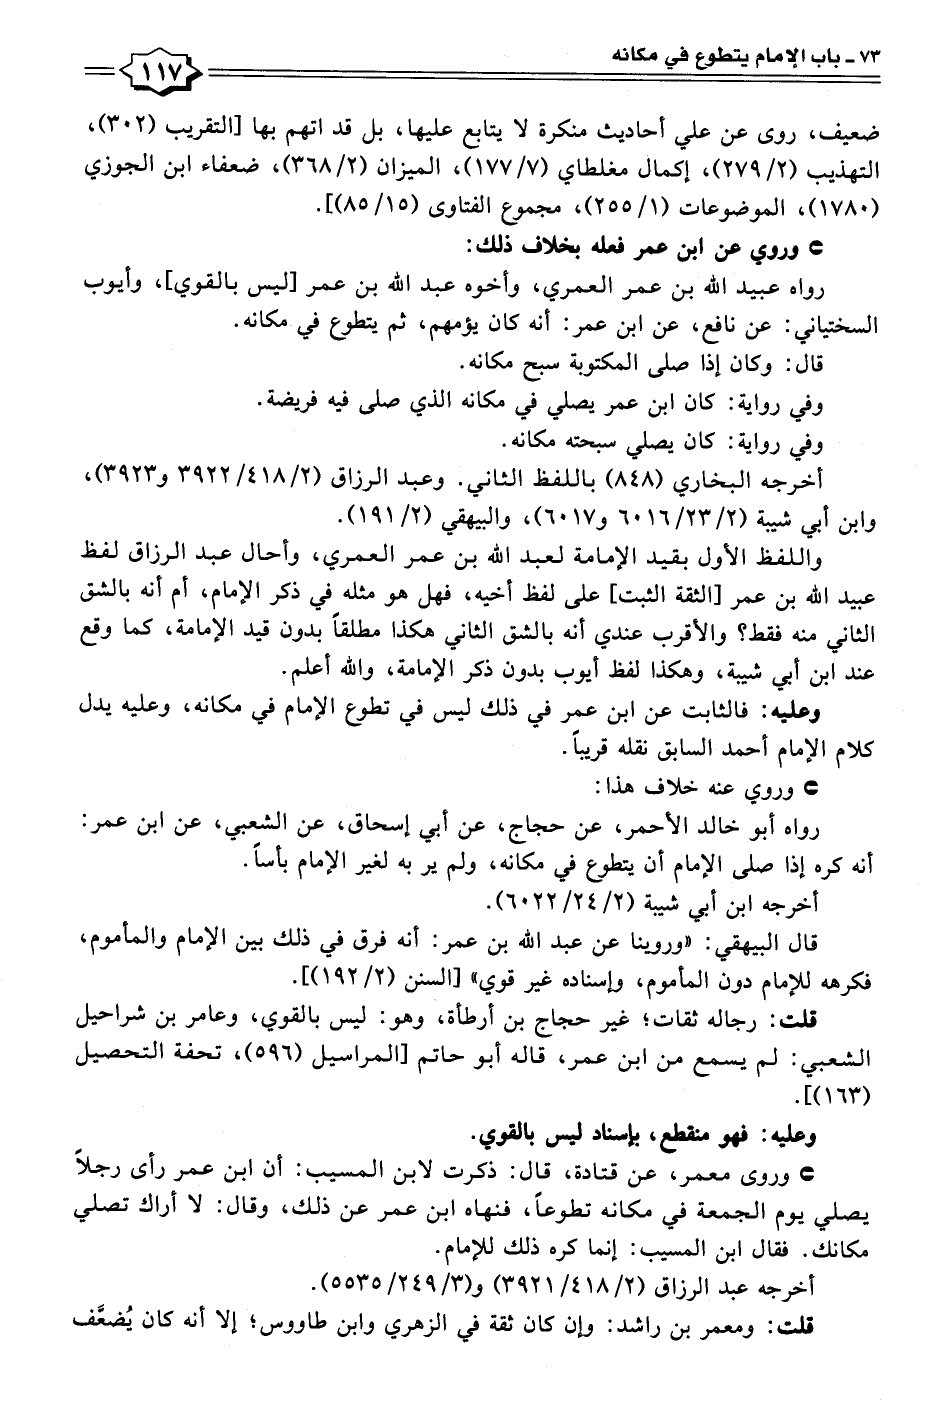 ٧٣ - باب الإمام يتطوع في مكانه
١١٧
ضعيف، روى عن علي أحاديث منكرة لا يتابع عليها، بل قد اتهم بها [التقريب (٣٠٢)،
التهذيب (٢/ ٢٧٩)، إكمال مغلطاي (٧/ ١٧٧)، الميزان (٢/ ٣٦٨)، ضعفاء ابن الجوزي
(١٧٨٠)، الموضوعات (١/ ٢٥٥)، مجموع الفتاوى (١٥/ ٨٥)].
وروي عن ابن عمر فعله بخلاف ذلك:
رواه عبيد الله بن عمر العمري، وأخوه عبد الله بن عمر [ليس بالقوي]، وأيوب
السختياني: عن نافع، عن ابن عمر: أنه كان يؤمهم، ثم يتطوع في مكانه.
قال: وكان إذا صلى المكتوبة سبح مكانه.
وفي رواية: كان ابن عمر يصلي في مكانه الذي صلى فيه فريضة.
وفي رواية: كان يصلي سبحته مكانه.
أخرجه البخاري (٨٤٨) باللفظ الثاني. وعبد الرزاق (٢/ ٤١٨/ ٣٩٢٢ و٣٩٢٣)،
وابن أبي شيبة (٢/ ٢٣/ ٦٠١٦ و٦٠١٧)، والبيهقي (٢/ ١٩١).
واللفظ الأول بقيد الإمامة لعبد الله بن عمر العمري، وأحال عبد الرزاق لفظ
عبيد الله بن عمر [الثقة الثبت] على لفظ أخيه، فهل هو مثله في ذكر الإمام، أم أنه بالشق
الثاني منه فقط؟ والأقرب عندي أنه بالشق الثاني هكذا مطلقاً بدون قيد الإمامة، كما وقع
عند ابن أبي شيبة، وهكذا لفظ أيوب بدون ذكر الإمامة، والله أعلم.
وعليه: فالثابت عن ابن عمر في ذلك ليس في تطوع الإمام في مكانه، وعليه يدل
كلام الإمام أحمد السابق نقله قريباً.
وروي عنه خلاف هذا:
رواه أبو خالد الأحمر، عن حجاج، عن أبي إسحاق، عن الشعبي، عن ابن عمر:
أنه كره إذا صلى الإمام أن يتطوع في مكانه، ولم ير به لغير الإمام بأساً.
أخرجه ابن أبي شيبة (٢/ ٢٤/ ٦٠٢٢).
قال البيهقي: «وروينا عن عبد الله بن عمر: أنه فرق في ذلك بين الإمام والمأموم،
فكرهه للإمام دون المأموم، وإسناده غير قوي» [السنن (٢/ ١٩٢)].
قلت: رجاله ثقات؛ غير حجاج بن أرطأة، وهو: ليس بالقوي، وعامر بن شراحيل
الشعبي: لم يسمع من ابن عمر، قاله أبو حاتم [المراسيل (٥٩٦)، تحفة التحصيل
(١٦٣)].
وعليه: فهو منقطع، بإسناد ليس بالقوي.
وروى معمر، عن قتادة، قال: ذكرت لابن المسيب: أن ابن عمر رأى رجلاً
يصلي يوم الجمعة في مكانه تطوعاً، فنهاه ابن عمر عن ذلك، وقال: لا أراك تصلي
مكانك. فقال ابن المسيب: إنما كره ذلك للإمام.
أخرجه عبد الرزاق (٢/ ٤١٨/ ٣٩٢١) و(٣/ ٢٤٩/ ٥٥٣٥).
قلت: ومعمر بن راشد: وإن كان ثقة في الزهري وابن طاووس؛ إلا أنه كان يُضعَّف